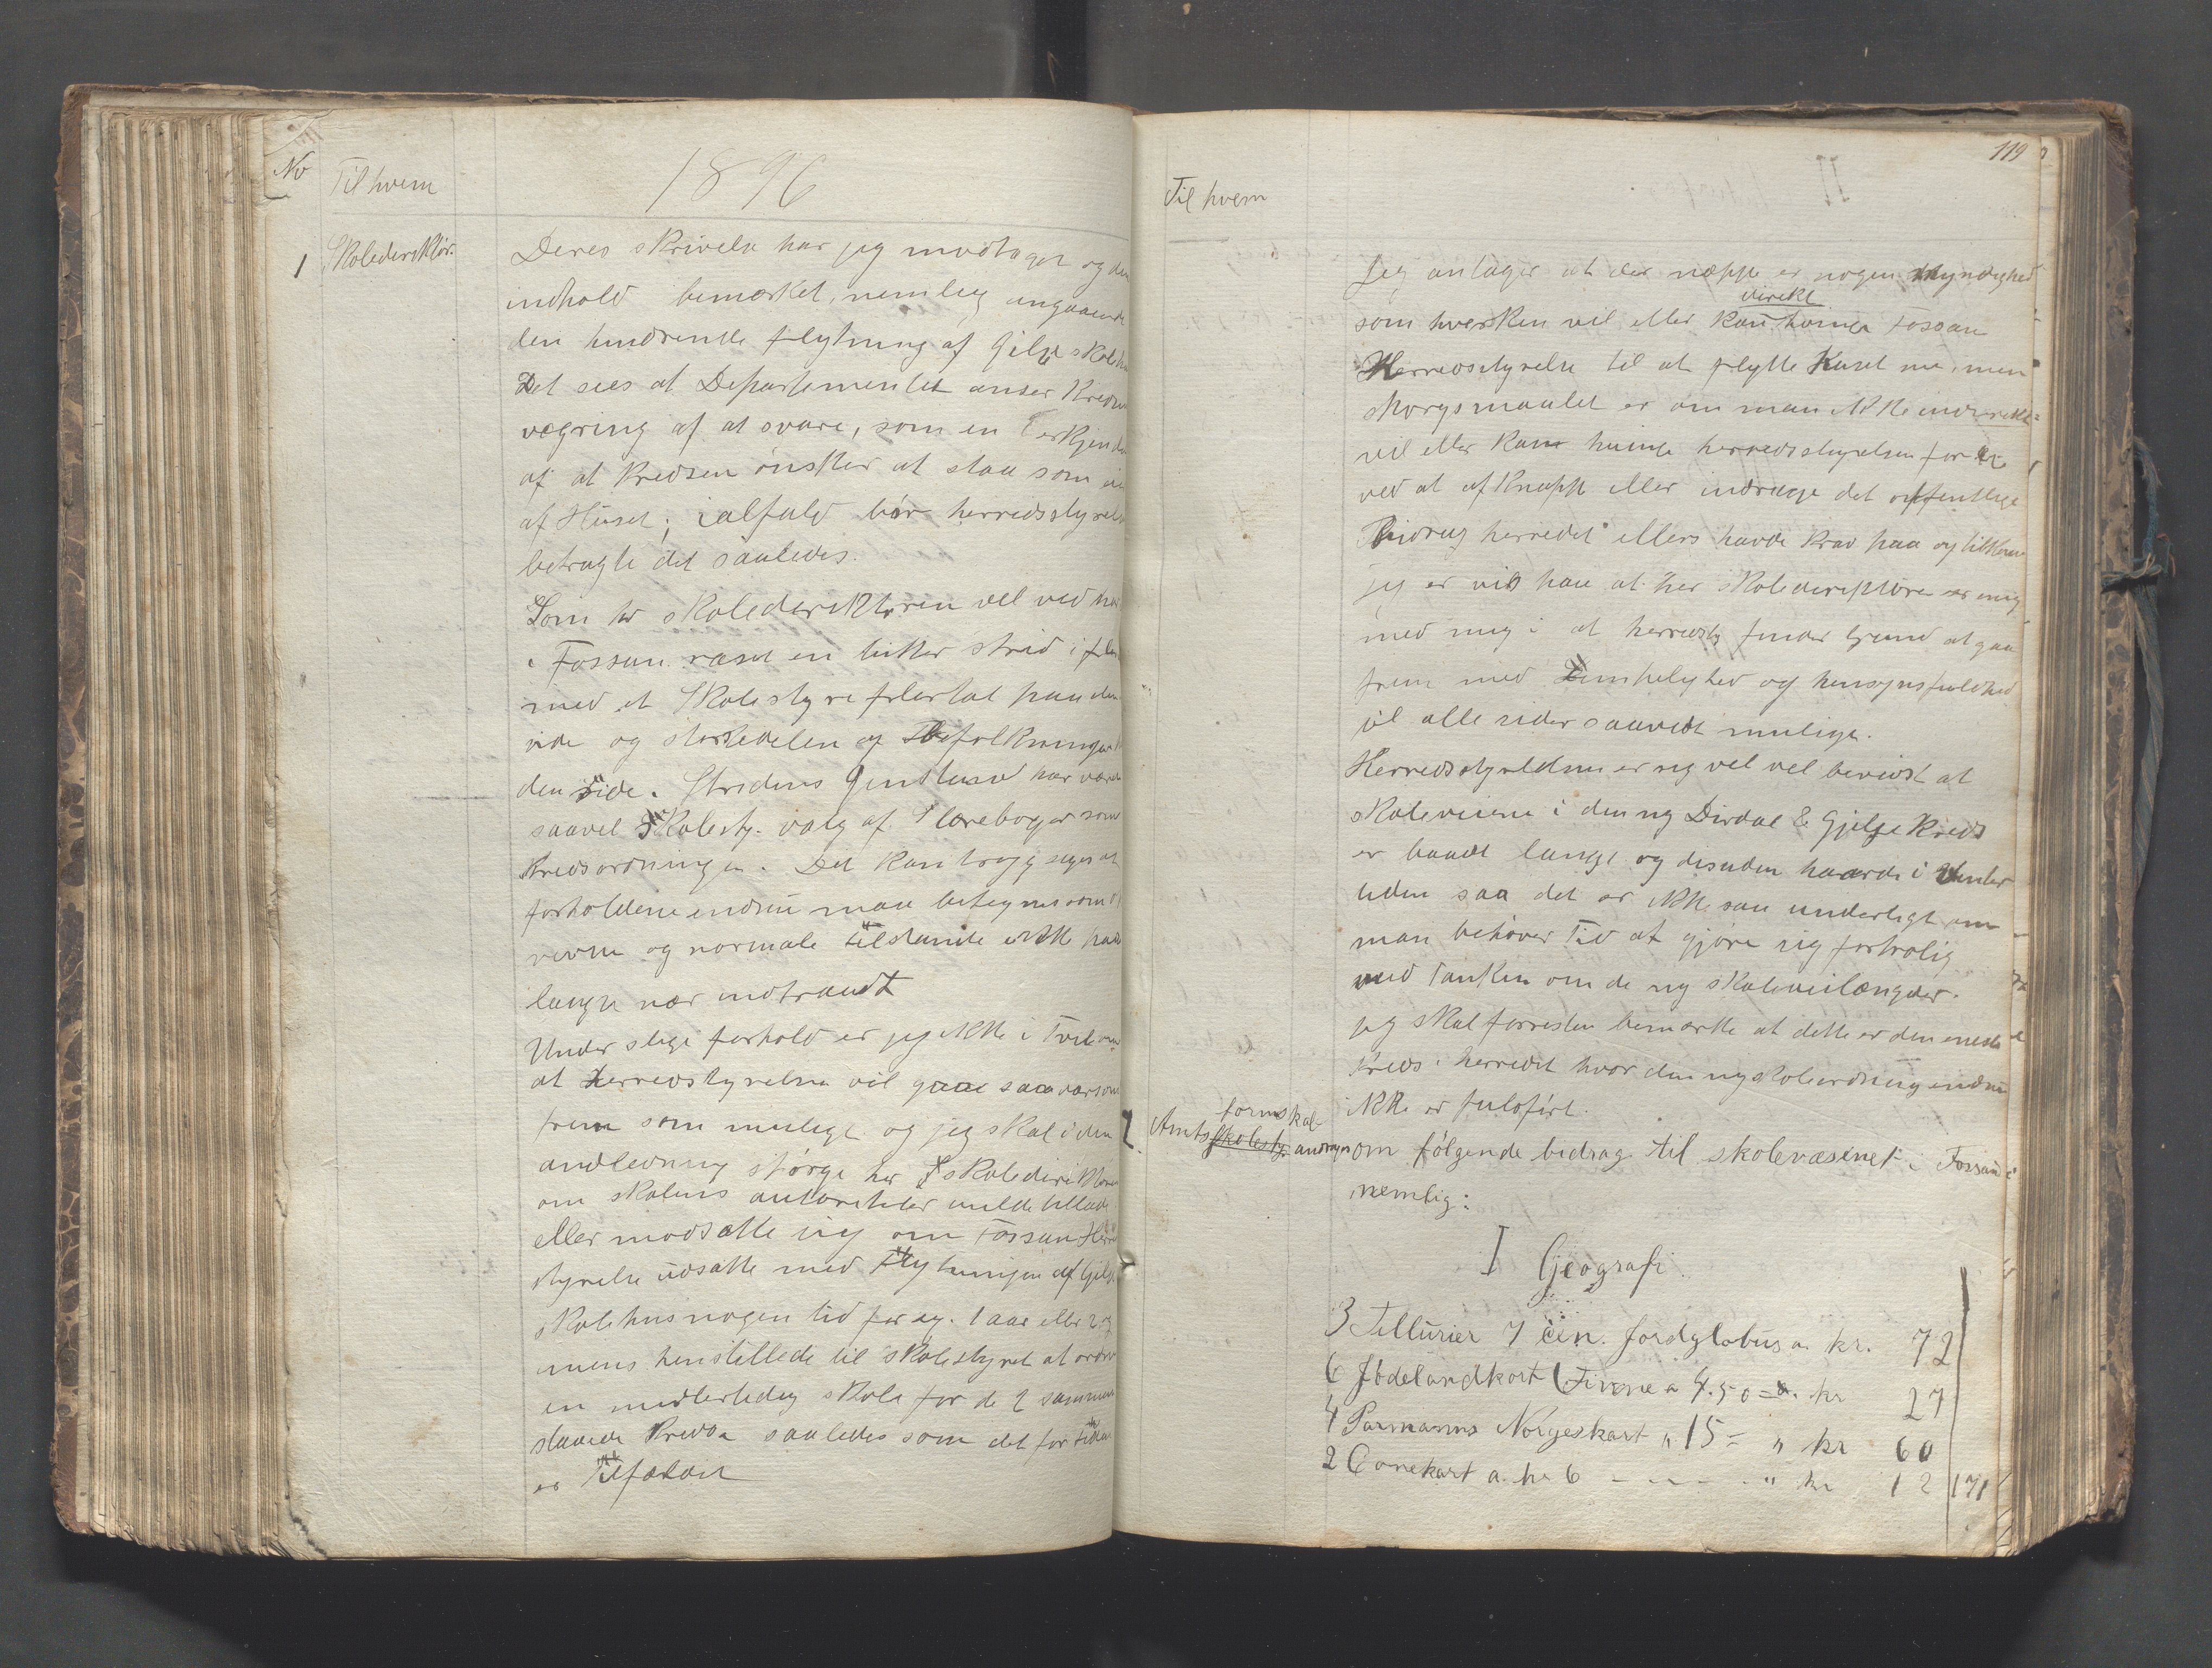 No
Til hvem
1896
1
Skoledirektør.
Deres skrivelse har jeg modtaget og den
indhold bemærket, nemlig angaaende
den hindrende flytning af Gilje skole
Det sees at Departementet anser Kredsen
vægring af at svare, som en Erkjen
af at Kredsen ønsker at staa som
af Huset; ialfald bør herredsstyrels
betragte det saaledes.
Som hr skoledirektøren vel ved har
i Fossan raset en bitter strid i flere
med et Skolestyreflertal paa den
side og størsedelen af Befolkningen
den side. Stridens Gjenstand har været
saavel Skolesty. valg af Lærebøger som
Kredsordningen. Det kan trygg siges at
forholdene endnu maa betegnes som
revne og normale tilstande ikke paa
lange nær indtraadt
Under slige forhold er jeg ikke i Tvil om
at herredstyrelsen vil gaae saa varsom
frem som muligt og jeg skal i den
andledning spørge hr skoledirektøren
om skolens autoriteter vilde tillade
eller modsætte sig om Fossan Herred
styrelse udsatte med Flytningen af Gilje
skolehus nogen tid f eg. 1 aar eller 2
mens henstillede til skolestyret at ordne
en midlertidig skole for de 2 sammen
slaaede Kredse saaledes som det for tiden
er Tilfældet
Til hvem
119
Jeg antager at der næppe er nogen Myndighed
direkt
som hverken vil eller kan tvinge Fossan
Herredsstyrelse til at flytte Huset nu, men
spørgsmaalet er om man ikke indirekte
vil eller kan tvinge herredsstyrelsen for
ved at afknappe eller inddrage det offentlige
Bidrag herredet ellers havde krav paa og tilkom
jeg er vis paa at her skoledirektøren er enig
med mig i at herredsty finder Grund at gaa
frem med Lempelighed og hensynsfuldhed
til alle sider saavidt muligt.
Herredsstyrelsen er sig vel vel bevidst at
skoleveiene i den ny Dirdal & Gjilje Kreds
er baade lange og desuden haarde i Vinter
tiden saa det er ikke saa underligt om
man behøver Tid at gjøre sig fortrolig
med Tanken om de ny skoleveilængder.
jeg skal forresten bemærke at dette er den eneste
Kreds i herredet hvor den ny skoleordning endnu
ikke er fuldført.
2
formskab
Amts skolesty. andrages om følgende bidrag til skolevæsenet i Fossan
nemlig:
I Geografi
3 Tellurier 7 cm. Jordglobus a kr. 72
6 Jødelandkort (Finne a 4.50 = a. kr 27
4 Parmanns Norgeskart " 15 = " kr 60
2 Sonekart a. kr 6 - - - - " kr 12 171